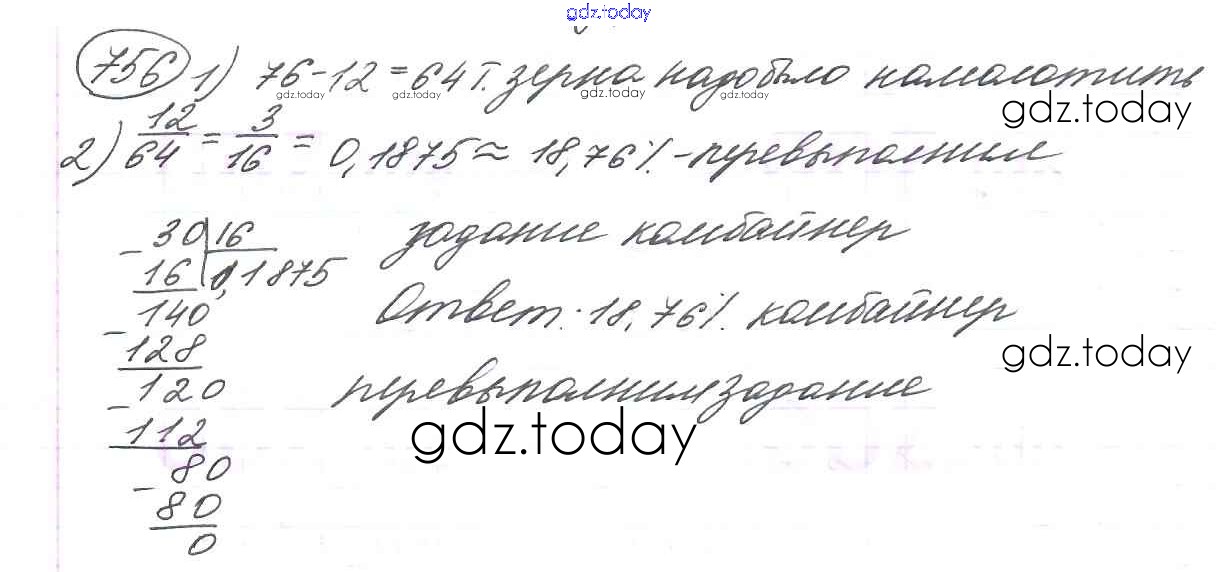 gdz.today
756 1) 76-12=64 т. зерна надо было намолотить
gdz.today gdz.today gdz.today gdz.today gdz.today
gdz.today
2) 12/64 = 3/16 = 0,1875 ≈ 18,76% - перевыполнил
30 16 задание комбайнер
- 16 0,1875
140 Ответ: 18,76% комбайнер
- 128 gdz.today
120 перевыполнил задание
- 112 gdz.today
80
- 80
0